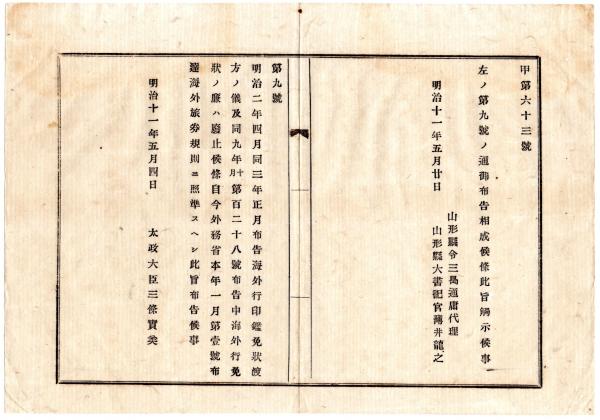 甲第六十三號
左ノ第九號ノ通御布告相成候條此旨揭示候事
明治十一年五月廿日
山形縣令三島通庸代理
山形縣大書記官薄井龍之
第九號
明治二年四月同三年正月布告海外行印鑑免狀渡
方ノ儀及同九年十月第百二十八號布告中海外行免
狀ノ廉ハ廢止候條自今外務省本年一月第壹號布
達海外旅券規則ニ照準スヘシ此旨布告候事
明治十一年五月四日
太政大臣三條實美